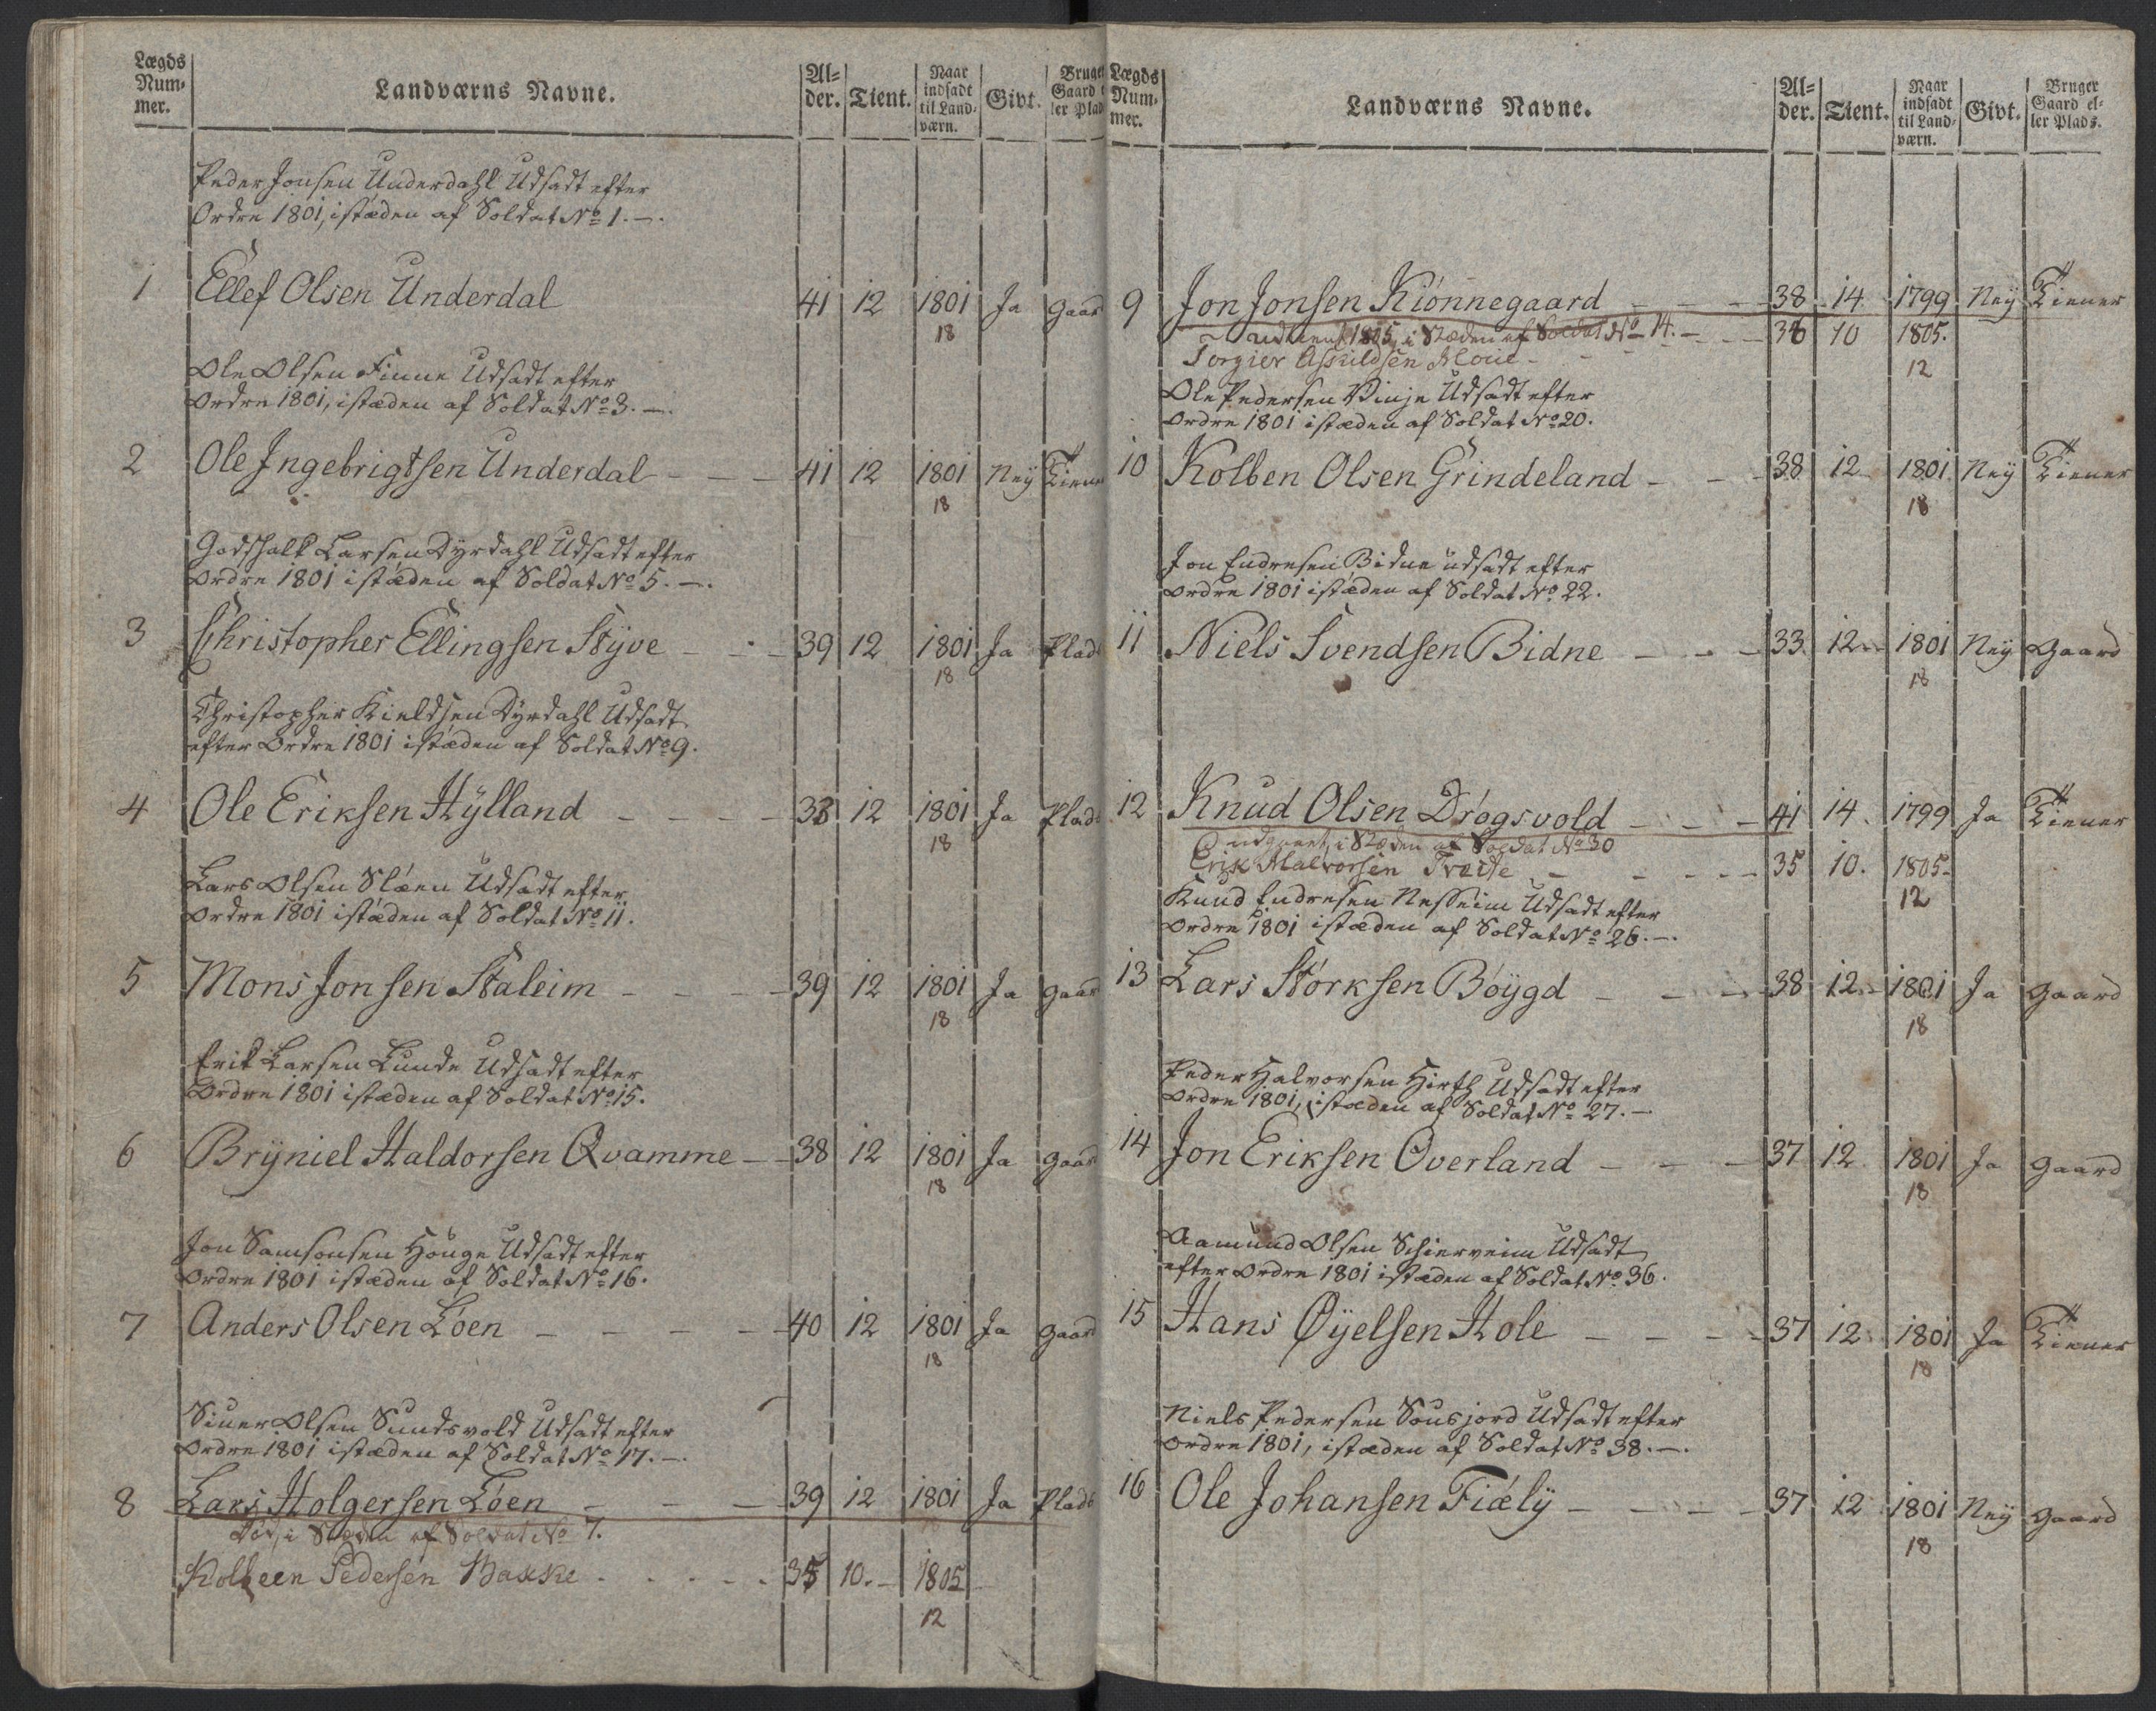 Lægds Num- mer. Landværns Navne. Al- der. Tient. Naar indsadt til Land- værn. Givt. Bruger Gaard el- ler Plads.
Peder Jonsen Underdahl Udsadt efter
Ordre 1801, istæden af Soldat No 1. -.
1 Ellef Olsen Underdal 41 12 1801 Ja Gaard
18
Ole Olsen Finne Udsadt efter
Ordre 1801, istæden af Soldat No 3. -.
2 Ole Ingebrigtsen Underdal - - - 41 12 1801 Ney Tiener
18
Godskalk Larsen Dyrdahl Udsadt efter
Ordre 1801 istæden af Soldat No 5. -.
3 Christopher Ellingsen Styve - - - 39 12 1801 Ja Plads
18
Christopher Kieldsen Dyrdahl Udsadt
efter Ordre 1801 istæden af Soldat No 9.
4 Ole Eriksen Hÿlland - - - - 33 12 1801 Ja Plads
18
Lars Olsen Slæen Udsadt efter
Ordre 1801 istæden af Soldat No 11.
5 Mons Jonsen Staleim - - - - 39 12 1801 Ja Gaard
18
Erik Larsen Lunde Udsadt efter
Ordre 1801 istæden af Soldat No 15.
6 Brÿniel Haldorsen Qvamme - - 38 12 1801 Ja Gaard
18
Jon Samsonsen Houge Udsadt efter
Ordre 1801 istæden af Soldat No 16.
7 Anders Olsen Löen - - - - - 40 12 1801 Ja Gaard
18
Siver Olsen Sundsvold Udsadt efter
Ordre 1801 istæden af Soldat No 17. -.
8 Lars Holgersen Löen - - - 39 12 1801 Ja Plads
Död, i Stæden af Soldat No 7.
Kolbeen Pedersen Bakke - - - - - 35 10. - 1805
12
Lægds Num- mer. Landværns Navne. Al- der. Tient. Naar indsadt til Land- værn. Givt. Bruger Gaard el- ler Plads.
9 Jon Jonsen Kiönnegaard - - - 38 14 1799 Ney Tiener
1805, i Stæden af Soldat No 14. - - - 36 10 1805.
Torgier Askildsen - - -
12
Ole Pedersen Vinje Udsadt efter
Ordre 1801 istæden af Soldat No 20.
10 Kolben Olsen Grindeland - - - 38 12 1801 Ney Tiener
18
Jon Endresen Bidne udsadt efter
Ordre 1801 istæden af Soldat No 22.
11 Niels Svendsen Bidne - - - 33 12 1801 Ney Gaard
18
12 Knud Olsen Drögsvold - - - 41 14. 1799 Ja Tiener
udgaaet, i Stæden af Soldat No 30
Erik Halvorsen Træite - - - - 35 10. 1805
12
Knud Endresen Nesheim Udsadt efter
Ordre 1801 istæden af Soldat No 26. -.
13 Lars Störksen Böÿgd - - - 38 12 1801 Ja Gaard
18
Peder Halvorsen Hirth Udsadt efter
Ordre 1801, istæden af Soldat No 27. -
14 Jon Eriksen Överland - - - 37 12 1801 Ja Gaard
18
Aamund Olsen Schierveim Udsadt
efter Ordre 1801 istæden af Soldat No 36.
15 Hans Øÿelsen Hole - - - - 37 12 1801 Ja Tiener
18
Niels Pedersen Sousjord Udsadt efter
Ordre 1801, istæden af Soldat No 38. -.
16 Ole Johansen Fiælÿ - - - - 37 12 1801 Ney Gaard
18